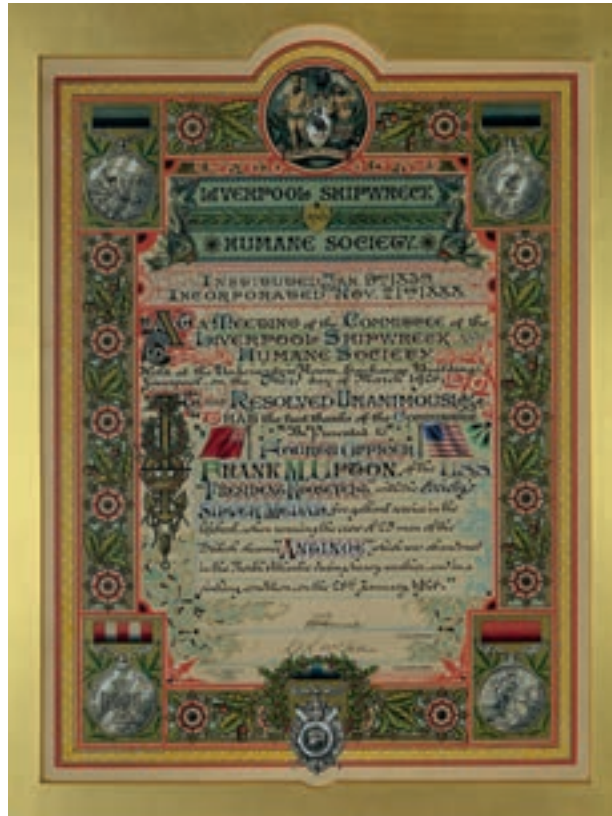 LIVERPOOL SHIPWRECK
AND
HUMANE SOCIETY.
INSTITUTED JAN 9TH 1839
INCORPORATED NOV. 21ST 1888.
AT A MEETING of the COMMITTEE of the
LIVERPOOL SHIPWRECK AND
HUMANE SOCIETY
Held at the Underwriters' Room, Exchange Buildings
Liverpool, on the day of March 1926,
It was RESOLVED UNANIMOUSLY
THAT the best thanks of the COMMITTEE
"Be Presented to"
FOURTH OFFICER
FRANK M. UPTON, of the U.S.S
PRESIDENT ROOSEVELT, with the Society's
SILVER MEDAL, for gallant service in the
lifeboat, when rescuing the crew of 25 men of the
British steamer "ANTINOE" which was abandoned
in the North Atlantic during heavy weather, and in a
sinking condition, on the January 1926."